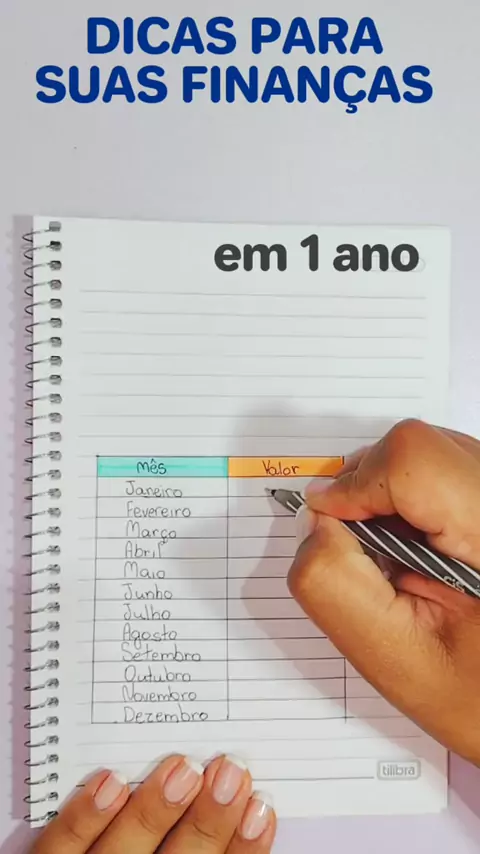 DICAS PARA
SUAS FINANÇAS
em 1 ano
Mês Valor
Janeiro
Fevereiro
Março
Abril
Maio
Junho
Julho
Agosto
Setembro
Outubro
Novembro
Dezembro
tilibra